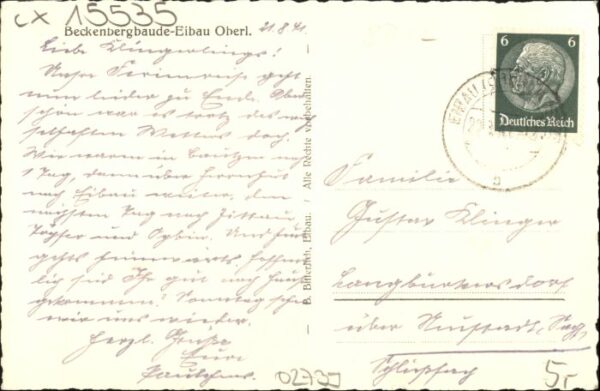 cx 15535
Beckenbergbaude-Eibau Oberl.
21.8.41.
Liebe Klingerlings!
Unsre Ferienreise geht
nun leider zu Ende. Aber
schön war es trotz des
Wetters doch.
Wir waren in Bautzen
1 Tag, dann über Herrnhut
nach Eibau weiter, den
nächsten Tag nach Zittau,
und Oybin. Und
gehts heimwärts. hoffent
lich seid Ihr gut nach Haus
gekommen! Sonntag sehn
wir uns wieder.
Herzl. Grüße
Eure
B. Bitterlich, Eibau. / Alle Rechte vorbehalten.
6 6
Deutsches Reich
EIBAU
b
Familie
Gustav Klinger
Langburkersdorf
über Neustadt, Sa,
02739
5,-